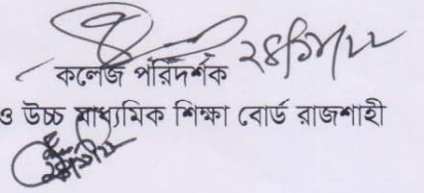 কলেজ পরিদর্শক
ও উচ্চ মাধ্যমিক শিক্ষা বোর্ড রাজশাহী